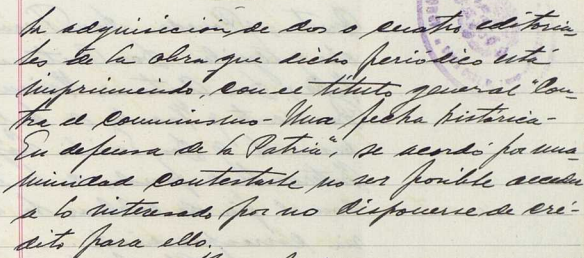 la adquisición, de dos o cuatro editoria-
les de la obra que dicho periódico está
imprimiendo, con el título general "Con-
tra el comunismo - Una fecha histórica -
En defensa de la Patria", se acordó por una-
nimidad contestarle no ser posible acceder
a lo interesado por no disponerse de cré-
dito para ello.